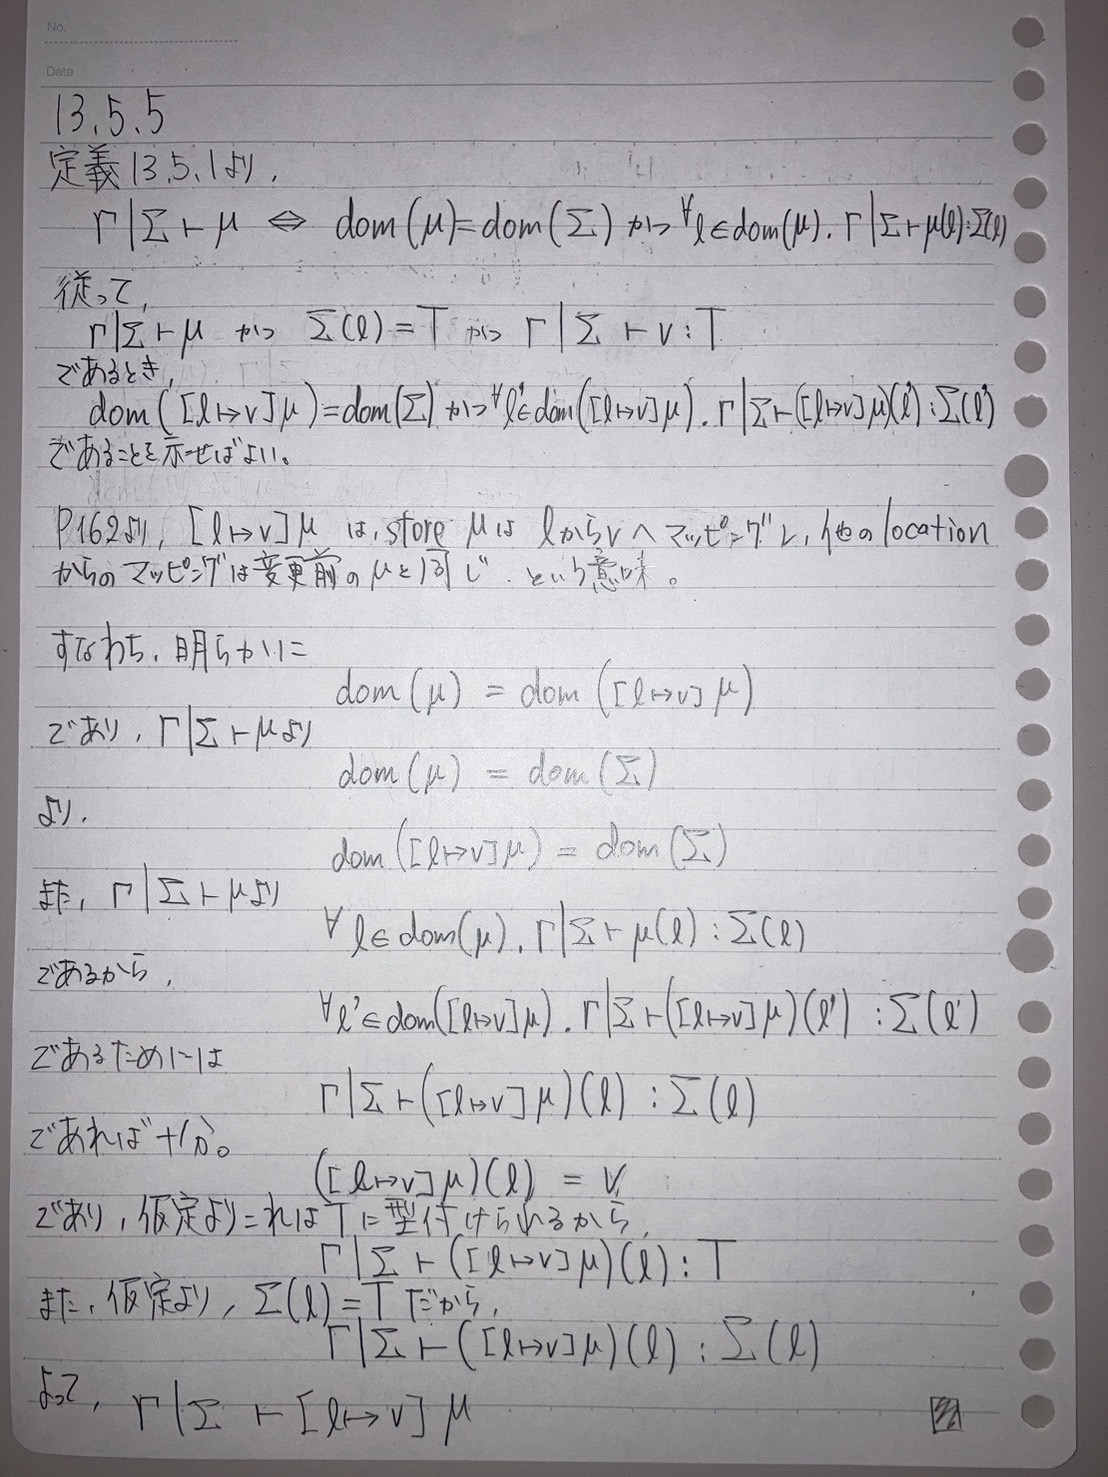 No.
Data
13.5.5
定義13.5.1より,
Γ|Σ⊢μ ⇔ dom(μ)=dom(Σ) かつ ∀l∈dom(μ). Γ|Σ⊢μ(l):Σ(l)
従って,
Γ|Σ⊢μ かつ Σ(l)=T かつ Γ|Σ⊢v:T
であるとき,
dom([l↦v]μ)=dom(Σ) かつ ∀l'∈dom([l↦v]μ). Γ|Σ⊢([l↦v]μ)(l'):Σ(l')
であることを示せばよい。
P162より, [l↦v]μ は, store μは lからvへマッピングし, 他のlocation
からのマッピングは変更前のμと同じ, という意味。
すなわち, 明らかに
dom(μ) = dom([l↦v]μ)
であり, Γ|Σ⊢μより
dom(μ) = dom(Σ)
より,
dom([l↦v]μ) = dom(Σ)
また, Γ|Σ⊢μより
∀l∈dom(μ). Γ|Σ⊢μ(l):Σ(l)
であるから,
∀l'∈dom([l↦v]μ). Γ|Σ⊢([l↦v]μ)(l') :Σ(l')
であるためには
Γ|Σ⊢([l↦v]μ)(l) :Σ(l)
であれば十分。
([l↦v]μ)(l) = v
であり, 仮定よりこれはTに型付けられるから,
Γ|Σ⊢([l↦v]μ)(l):T
また, 仮定より, Σ(l)=Tだから,
Γ|Σ⊢([l↦v]μ)(l):Σ(l)
よって, Γ|Σ⊢[l↦v]μ